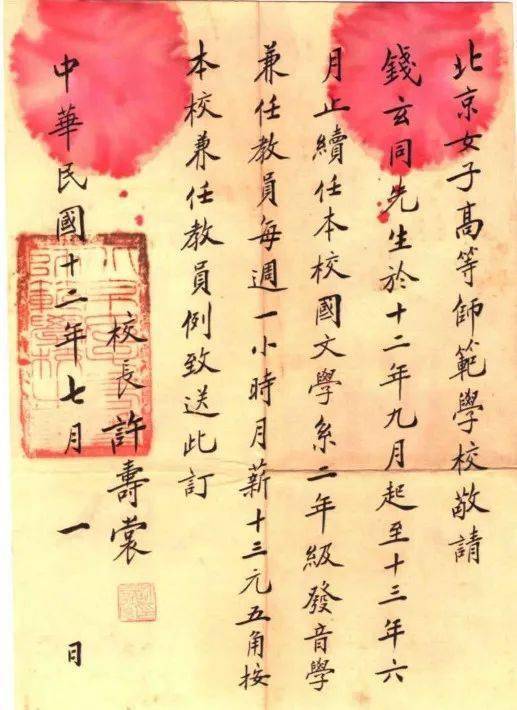 北京女子高等師範學校敬請
錢玄同先生於十二年九月起至十三年六
月止續任本校國文學系二年級發音學
兼任教員每週一小時月薪十三元五角按
本校兼任教員例致送此訂
校長許壽裳
中華民國十二年七月一日